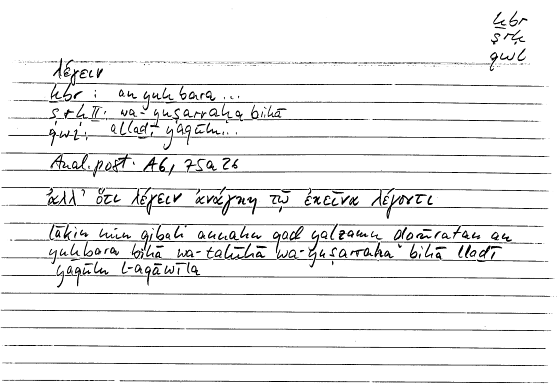 ḫbr
ṣrḥ
qwl
λέγειν
ḫbr : an yuḫbara ...
ṣrḥ II: wa-yuṣarraḥa bihā
qwl: allaḏī yaqūlu...
Anal. post. A6, 75a26
ἀλλ' ὅτι λέγειν ἀνάγκη τῷ ἐκεῖνα λέγοντι
lākin min qibali annahu qad yalzamu ḍarūratan an
yuḫbara bihā wa-yuṣarraḥa bihā llaḏī
yaqūlu l-aqāwīla